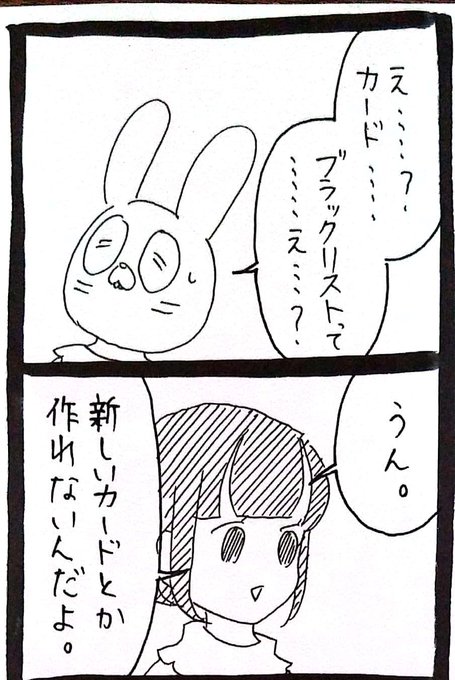 え……？
カード……
ブラックリストって
……え…？
うん。
新しいカードとか
作れないんだよ。